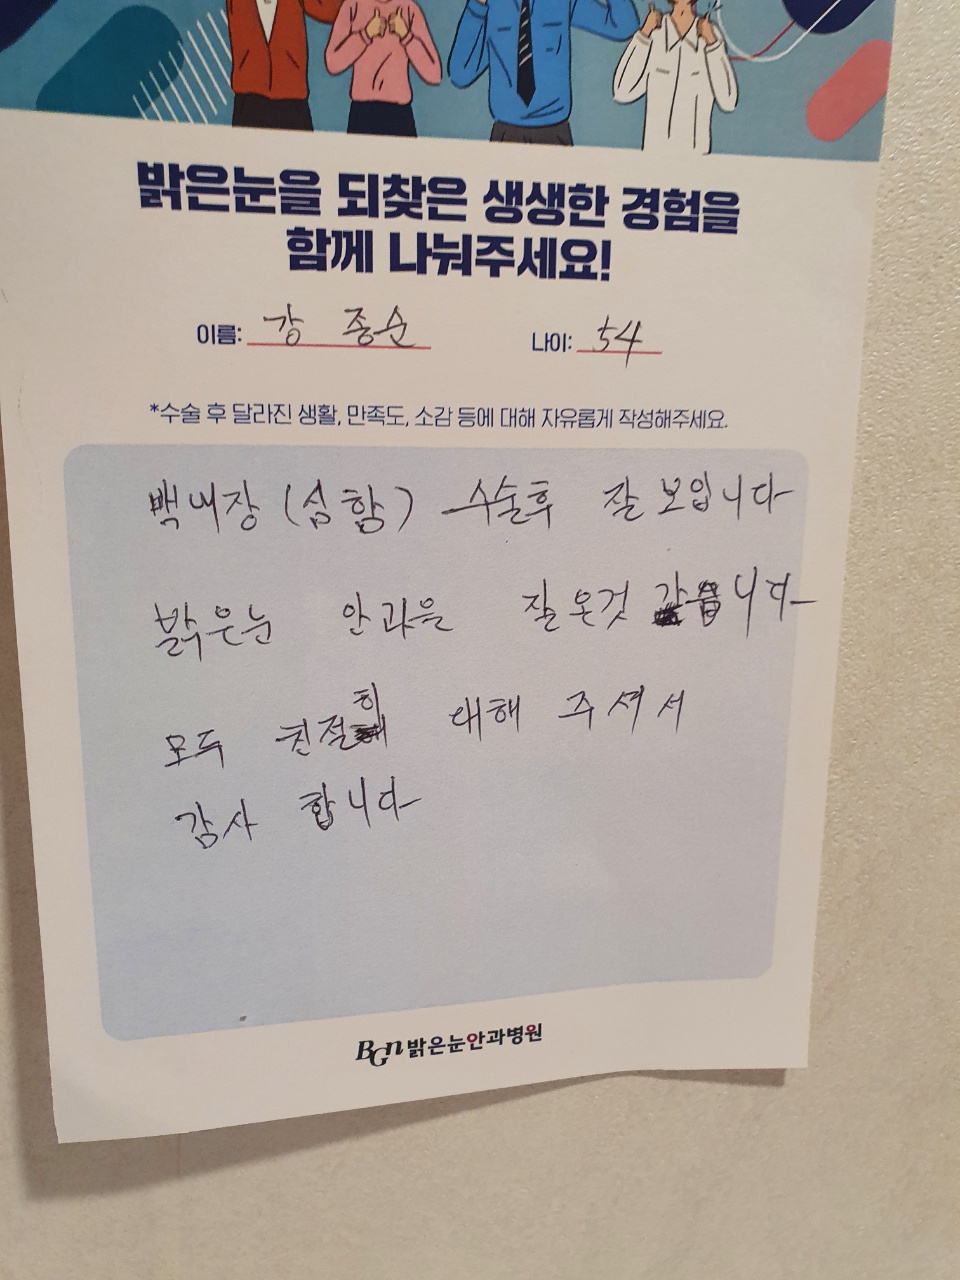 밝은눈을 되찾은 생생한 경험을
함께 나눠주세요!
이름: 강 종순 나이: 54
*수술 후 달라진 생활, 만족도, 소감 등에 대해 자유롭게 작성해주세요.
백내장 (심함) 수술후 잘 보입니다
밝은눈 안과은 잘온것 같습니다
모두 친절히 대해 주셔서
감사 합니다
BGn 밝은눈안과병원